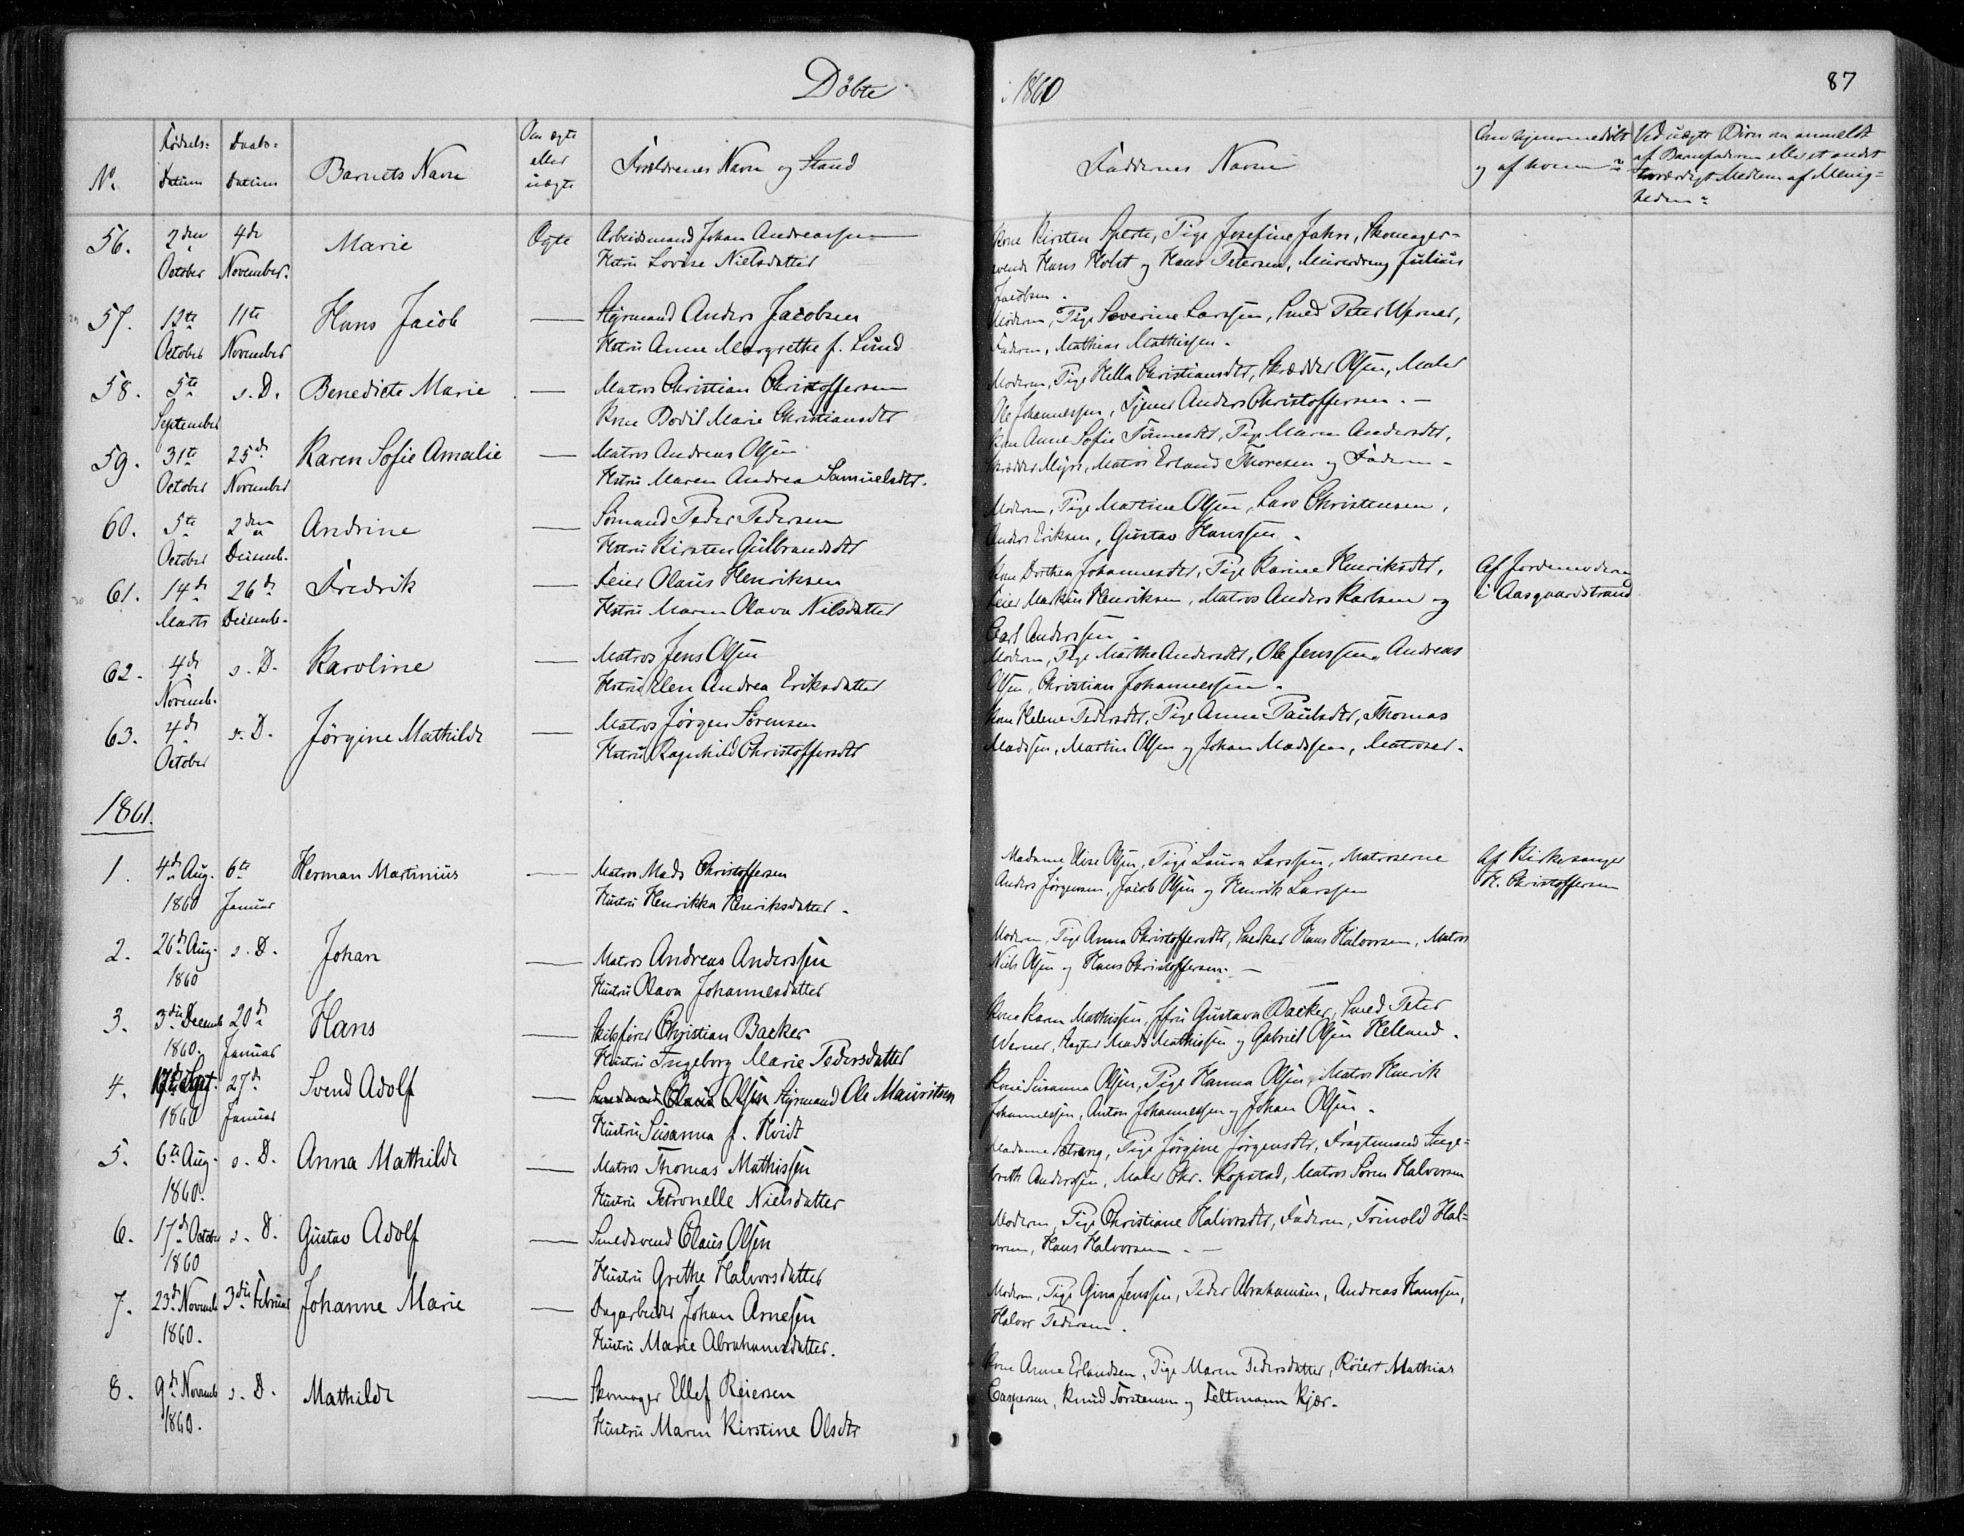 Döbte i 1860
87
No.
Fødsels-
Datum
Daabs-
Datum
Barnets Navn
Om ægte
eller
uægte
Forældrenes Navn og Stand
Faddernes Navne
Om hjemmedøbt
og af hvem
Ved uægte Børn om anmeldt
af Barnefaderen eller et andet
troværdigt Medlem af Menig-
heden
56. 2den 4de Marie Ægte Arbeidsmand Johan Andreassen
October November. Hstru Lovise Nielsdatter
Kone Kirsten Sperte, Pige Josefine Jahn, Skomager-
svend Hans Holst og Hans Petersen, Murerdreng Julius
Jacobsen.
57. 12te 11te Hans Jacob — Styrmand Anders Jacobsen
October November Hstru Anne Margrethe f. Lund
Moderen, Pige Severine Larssen, Smed Peter Werner,
Faderen, Mathias Mathissen.
58. 5te s. D. Benedicte Marie — Matros Christian Christoffersen
September Kone Bodil Marie Christiansdtr
Moderen, Pige Hella Christiansdtr, Skrædder Olsen, Maler
Ole Johannessen, Tjener Anders Christoffersen. —
59. 31te 25de Karen Sofie Amalie — Matros Andreas Olsen
October November Hstru Maren Andrea Samuelsdtr.
Kone Anne Sofie Tönnesdtr, Pige Maren Andersdtr,
Skrædder Myre, Matros Erland Thoresen og Faderen —
60. 5te 2den Andrine — Sömand Peder Pedersen
October Decemb. Hstru Kirsten Gulbrandsdtr
Moderen, Pige Martine Olsen, Lars Christensen,
Anders Eriksen, Gustav Hanssen.
61. 14de 26de Fredrik — Feier Olaus Henriksen
Marts Decemb. Hstru Maren Olava Nilsdatter
Kone Dorthea Johannesdtr, Pige Karine Henriksdtr,
Feier Markus Henriksen, Matros Anders Karlsen og
Carl Anderssen.
Af Jordemoderen
i Aasgaardstrand
62. 4de s. D. Karoline — Matros Jens Olsen
Novemb. Hstru Elen Andrea Eriksdatter
Moderen, Pige Marthe Andersdtr, Ole Jenssen, Andreas
Olsen, Christian Johannessen.
63. 4de s. D. Jörgine Mathilde — Matros Jörgen Sörensen
October Hstru Ragnhild Christoffersdtr
Kone Helene Pedersdtr, Pige Anne Paulsdtr, Thomas
Madssen, Martin Olsen og Johan Madssen, Matroser.
1861.
1. 4de Aug. 6te Herman Martinius — Matros Mads Christoffersen
1860 Januar Hustru Henrikka Henriksdatter.
Madame Elise Olsen, Pige Laura Larssen, Matroserne
Anders Jörgensen, Jacob Olsen og Henrik Larssen
Af Kirkesanger
H. Christoffersen
2. 26de Aug. s. D. Johan — Matros Andreas Anderssen
1860 Hustru Olava Johannesdatter
Moderen, Pige Anna Christoffersdtr, Snedker Hans Halvorsen, Matros
Niels Olsen og Hans Christoffersen. —
3. 3die Decemb 20de Hans — Skibsfører Christian Backer
1860. Januar Hustru Ingeborg Marie Pedersdatter
Kone Karen Mathissen, Jfru Gustava Backer, Smed Peter
Werner, Mads Mathissen og Gabriel Olsen Helland.
4. Sept. 27de Svend Adolf — Claus Olsen Styrmand Ole Mauritsen
1860 Januar Hustru Susanna f. Hvidt
Kone Susanna Olsen, Pige Hanna Olsen, Matros Henrik
Johannessen, Anton Johannessen og Johan Olsen.
5. 6te Aug. s. D. Anna Mathilde — Matros Thomas Mathissen
1860. Hustru Petronelle Nielsdatter
Madame Strang, Pige Jörgine Jörgensdtr, Fragtemand Inge-
breth Anderssen, Maler Chr. Kopstad, Matros Sören Halvorsen
6. 17de October s. D. Gustav Adolf — Smedsvend Claus Olsen
1860 Hustru Grethe Halvorsdatter
Moderen, Pige Christiane Halvorsdtr, Faderen, Trinold Hal-
vorsen, Hans Halvorsen. —
7. 23de Novemb 3die Februar Johanne Marie — Dagarbeider Johan Arnesen
1860. Hustru Marie Abrahamsdatter.
Moderen, Pige Gina Jenssen, Peder Abrahamsen, Andreas Hanssen,
Halvor Pedersen.
8. 9de Novemb s. D. Mathilde — Skomager Ellef Reiersen
1860. Hustru Maren Kirstine Olsdtr
Kone Anne Erlandsen, Pige Maren Pedersdatter, Röiert Mathias
Caspersen, Knud Torstensen og Feltmann Kjær.